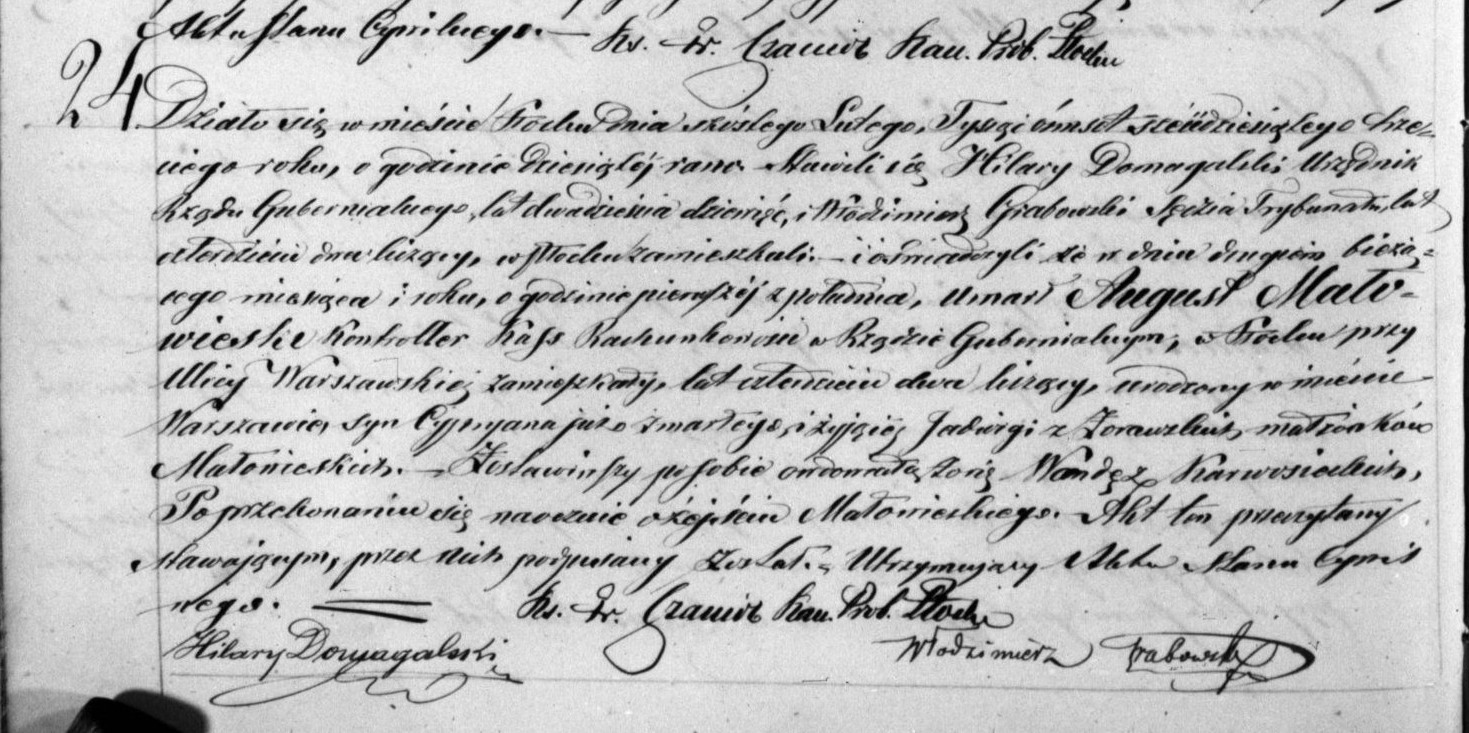 Aktu Stanu Cywilnego. — Ks. Fr. Czamiot Kan. Prob. Płocki
24. Działo się w mieście Płocku dnia szóstego Lutego, Tysiąc ósmset sześćdziesiątego trze-
ciego roku, o godzinie dziesiątéj rano. Stawili się Hilary Domagalski Urzędnik
Rządu Gubernialnego, lat dwadzieścia dziewięć, i Włodzimierz Grabowski Sędzia Trybunału, lat
czterdzieści dwa liczący, w Płocku zamieszkali. — i oświadczyli że w dniu drugim bieżą-
cego miesiąca i roku, o godzinie pierwszéj z południa, umarł August Mało-
wieski Kontroller Kass Rachunkowości w Rządzie Gubernialnym, w Płocku przy
Ulicy Warszawskiéj zamieszkały, lat czterdzieści dwa liczący, urodzony w mieście
Warszawie, syn Cypryana już zmarłego, i żyjącéj Jadwigi z Żorawskich małżonków
Małowieskich. — Zostawiwszy po sobie owdowiałą żonę Wandę z Karwosieckich,
Po przekonaniu się naocznie o zejściu Małowieskiego. Akt ten przeczytany
stawającym, przez nich podpisany został. Utrzymujący Akta Stanu Cywil
nego. Ks. Fr. Czamiot Kan. Prob. Płocki
Hilary Domagalski Włodzimierz Grabowski